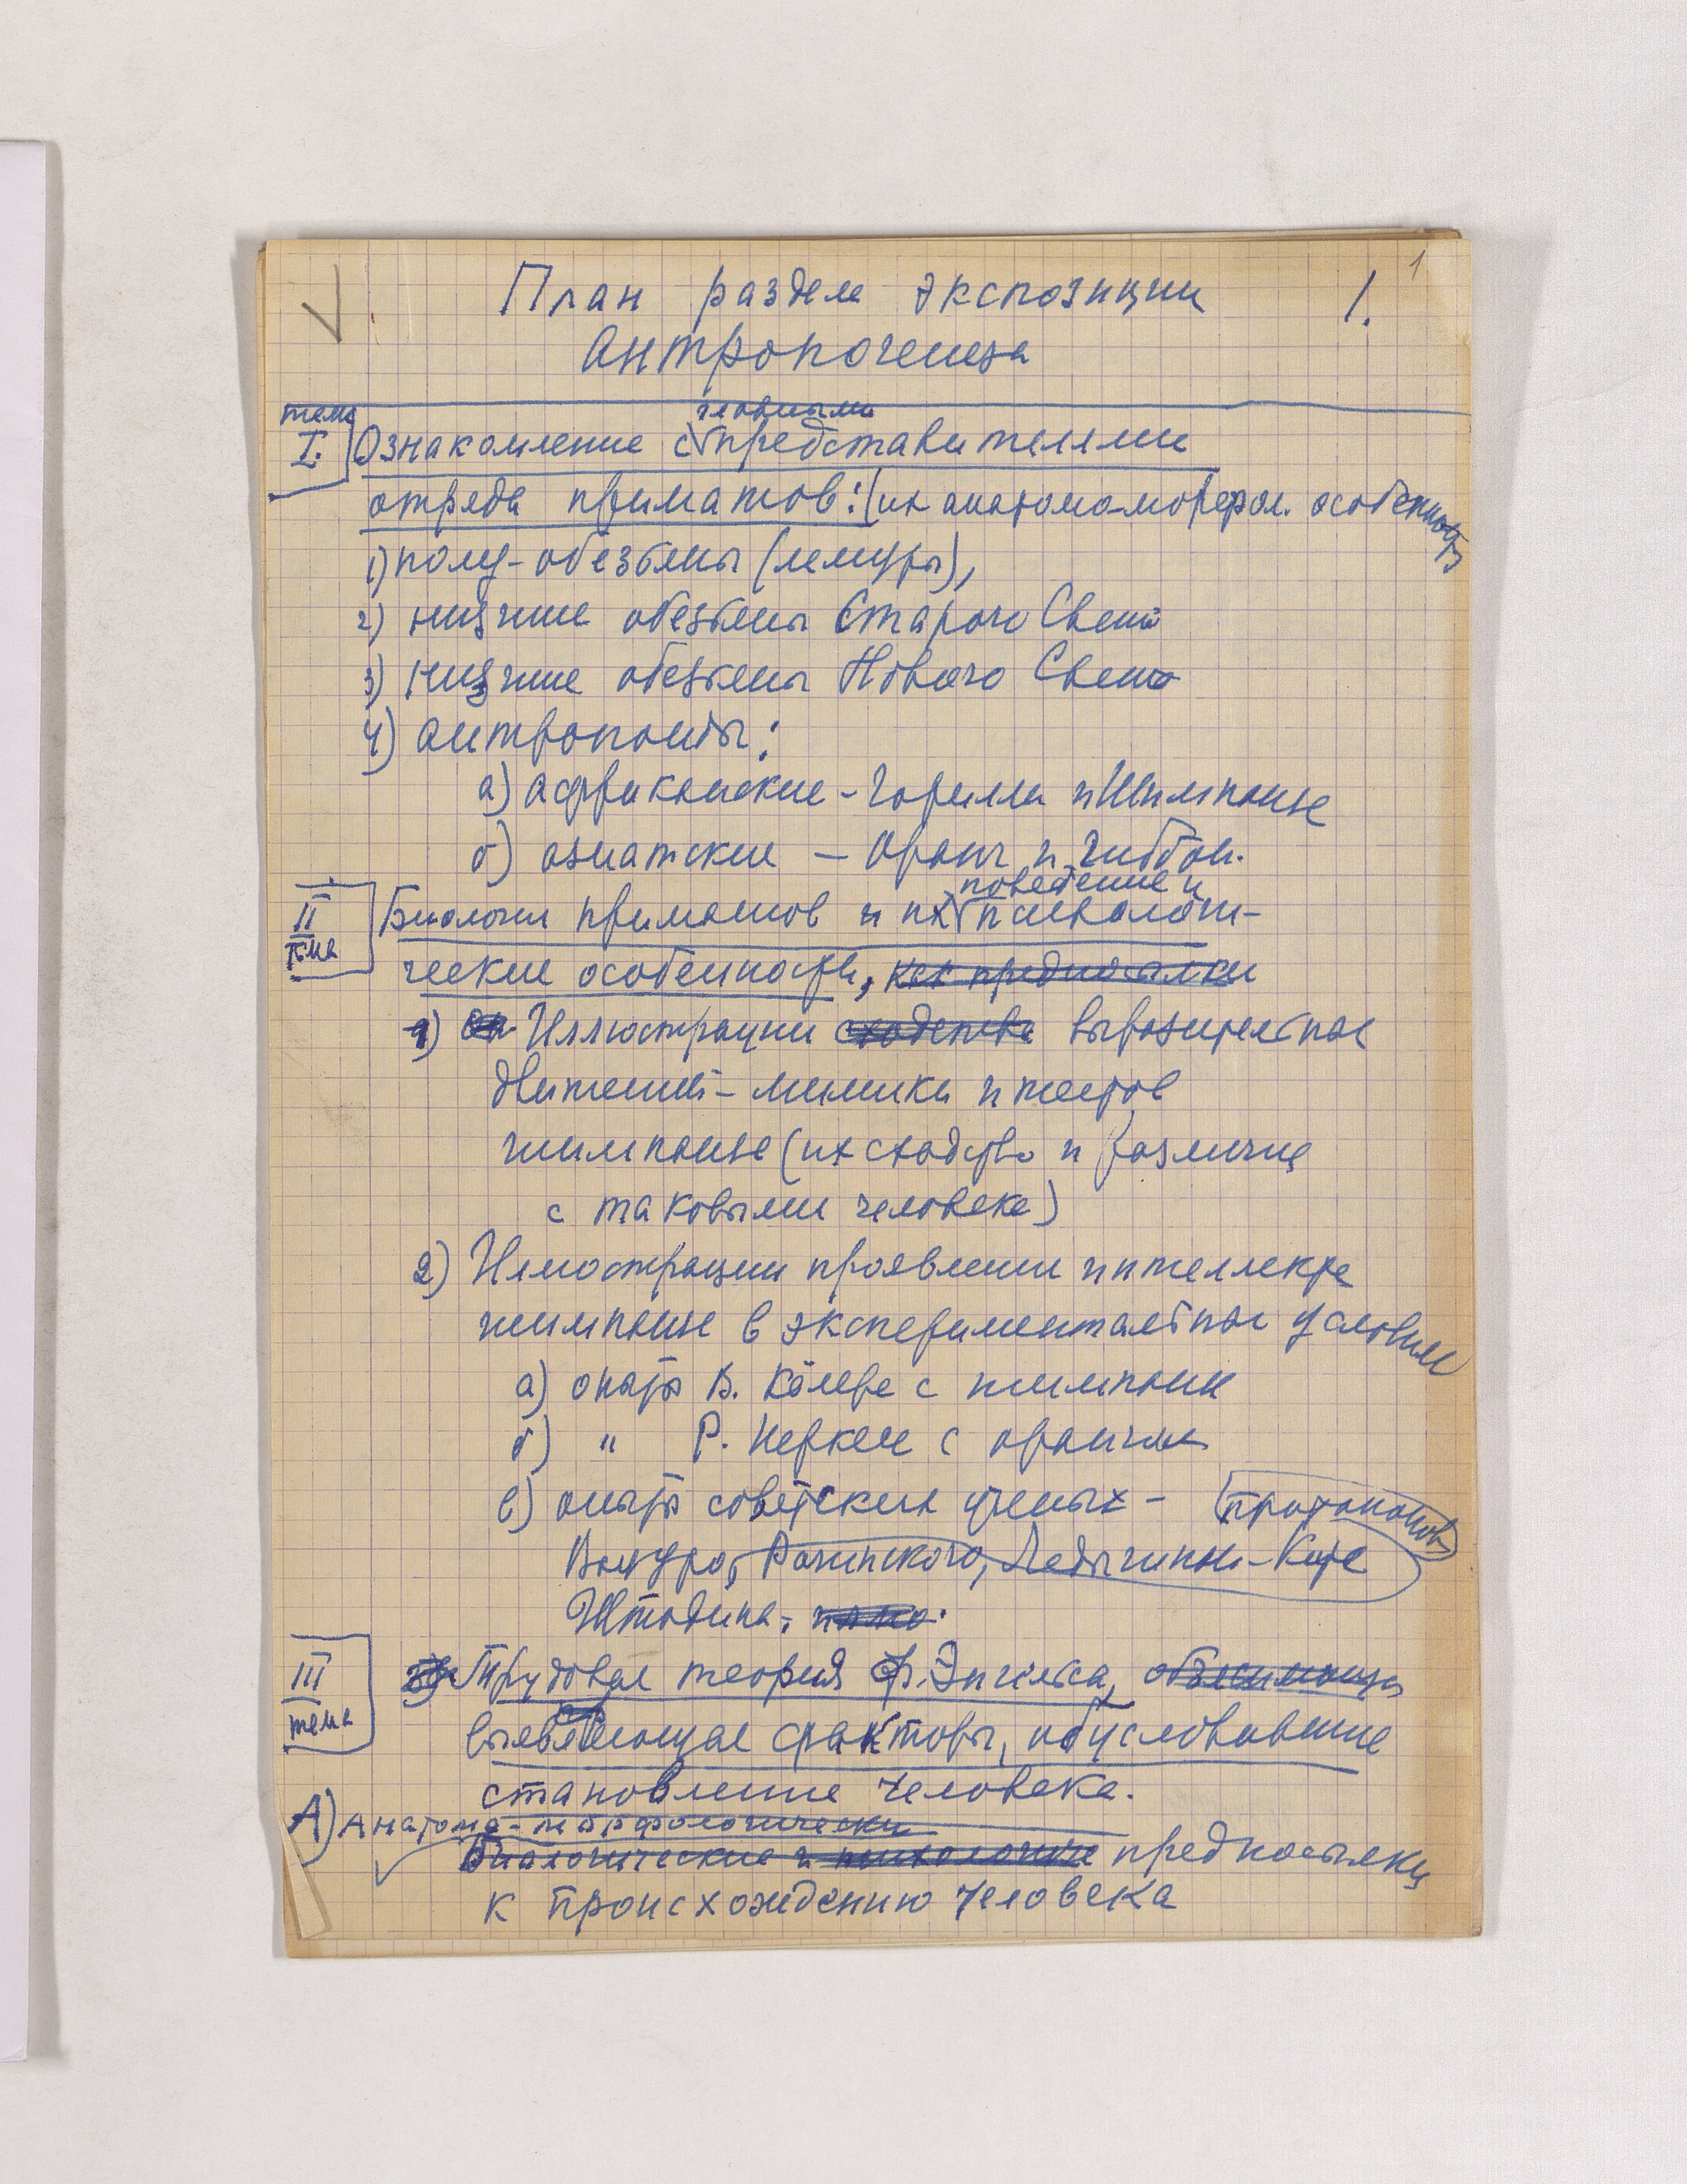 1
План раздела экспозиции 1.
Антропогенеза
тема
I.
главными
Ознакомление с представителями
отряда приматов: (их анатомо-морфол. особенности
1) полу-обезьяны (лемуры),
2) низшие обезьяны Старого Света
3) низшие обезьяны Нового Света
4) антропоиды:
а) африканские - Горилла и Шимпанзе
б) азиатские — Оранг и гиббон.
II
тема
поведение и
Биология приматов и их психологи-
ческие особенности, как предпосылки
1) Иллюстрации сходства выразительных
движений - мимики и жестов
шимпанзе (их сходство и различие
с таковыми человека)
2) Иллюстрации проявления интеллекта
шимпанзе в экспериментальных условиях
а) опыты В. Кёлера с шимпанзе
б) " Р. Иеркса с орангом
в) опыты советских ученых - Протопопов
Вацуро, Рогинского, Ладыгиной-Котс
Штодина,
III
тема
Трудовая теория Ф. Энгельса, объясняющая
выявляющая факторы, обусловившие
становление человека.
А) Анатомо-морфологически
Биологические и психологические предпосылки
к происхождению человека